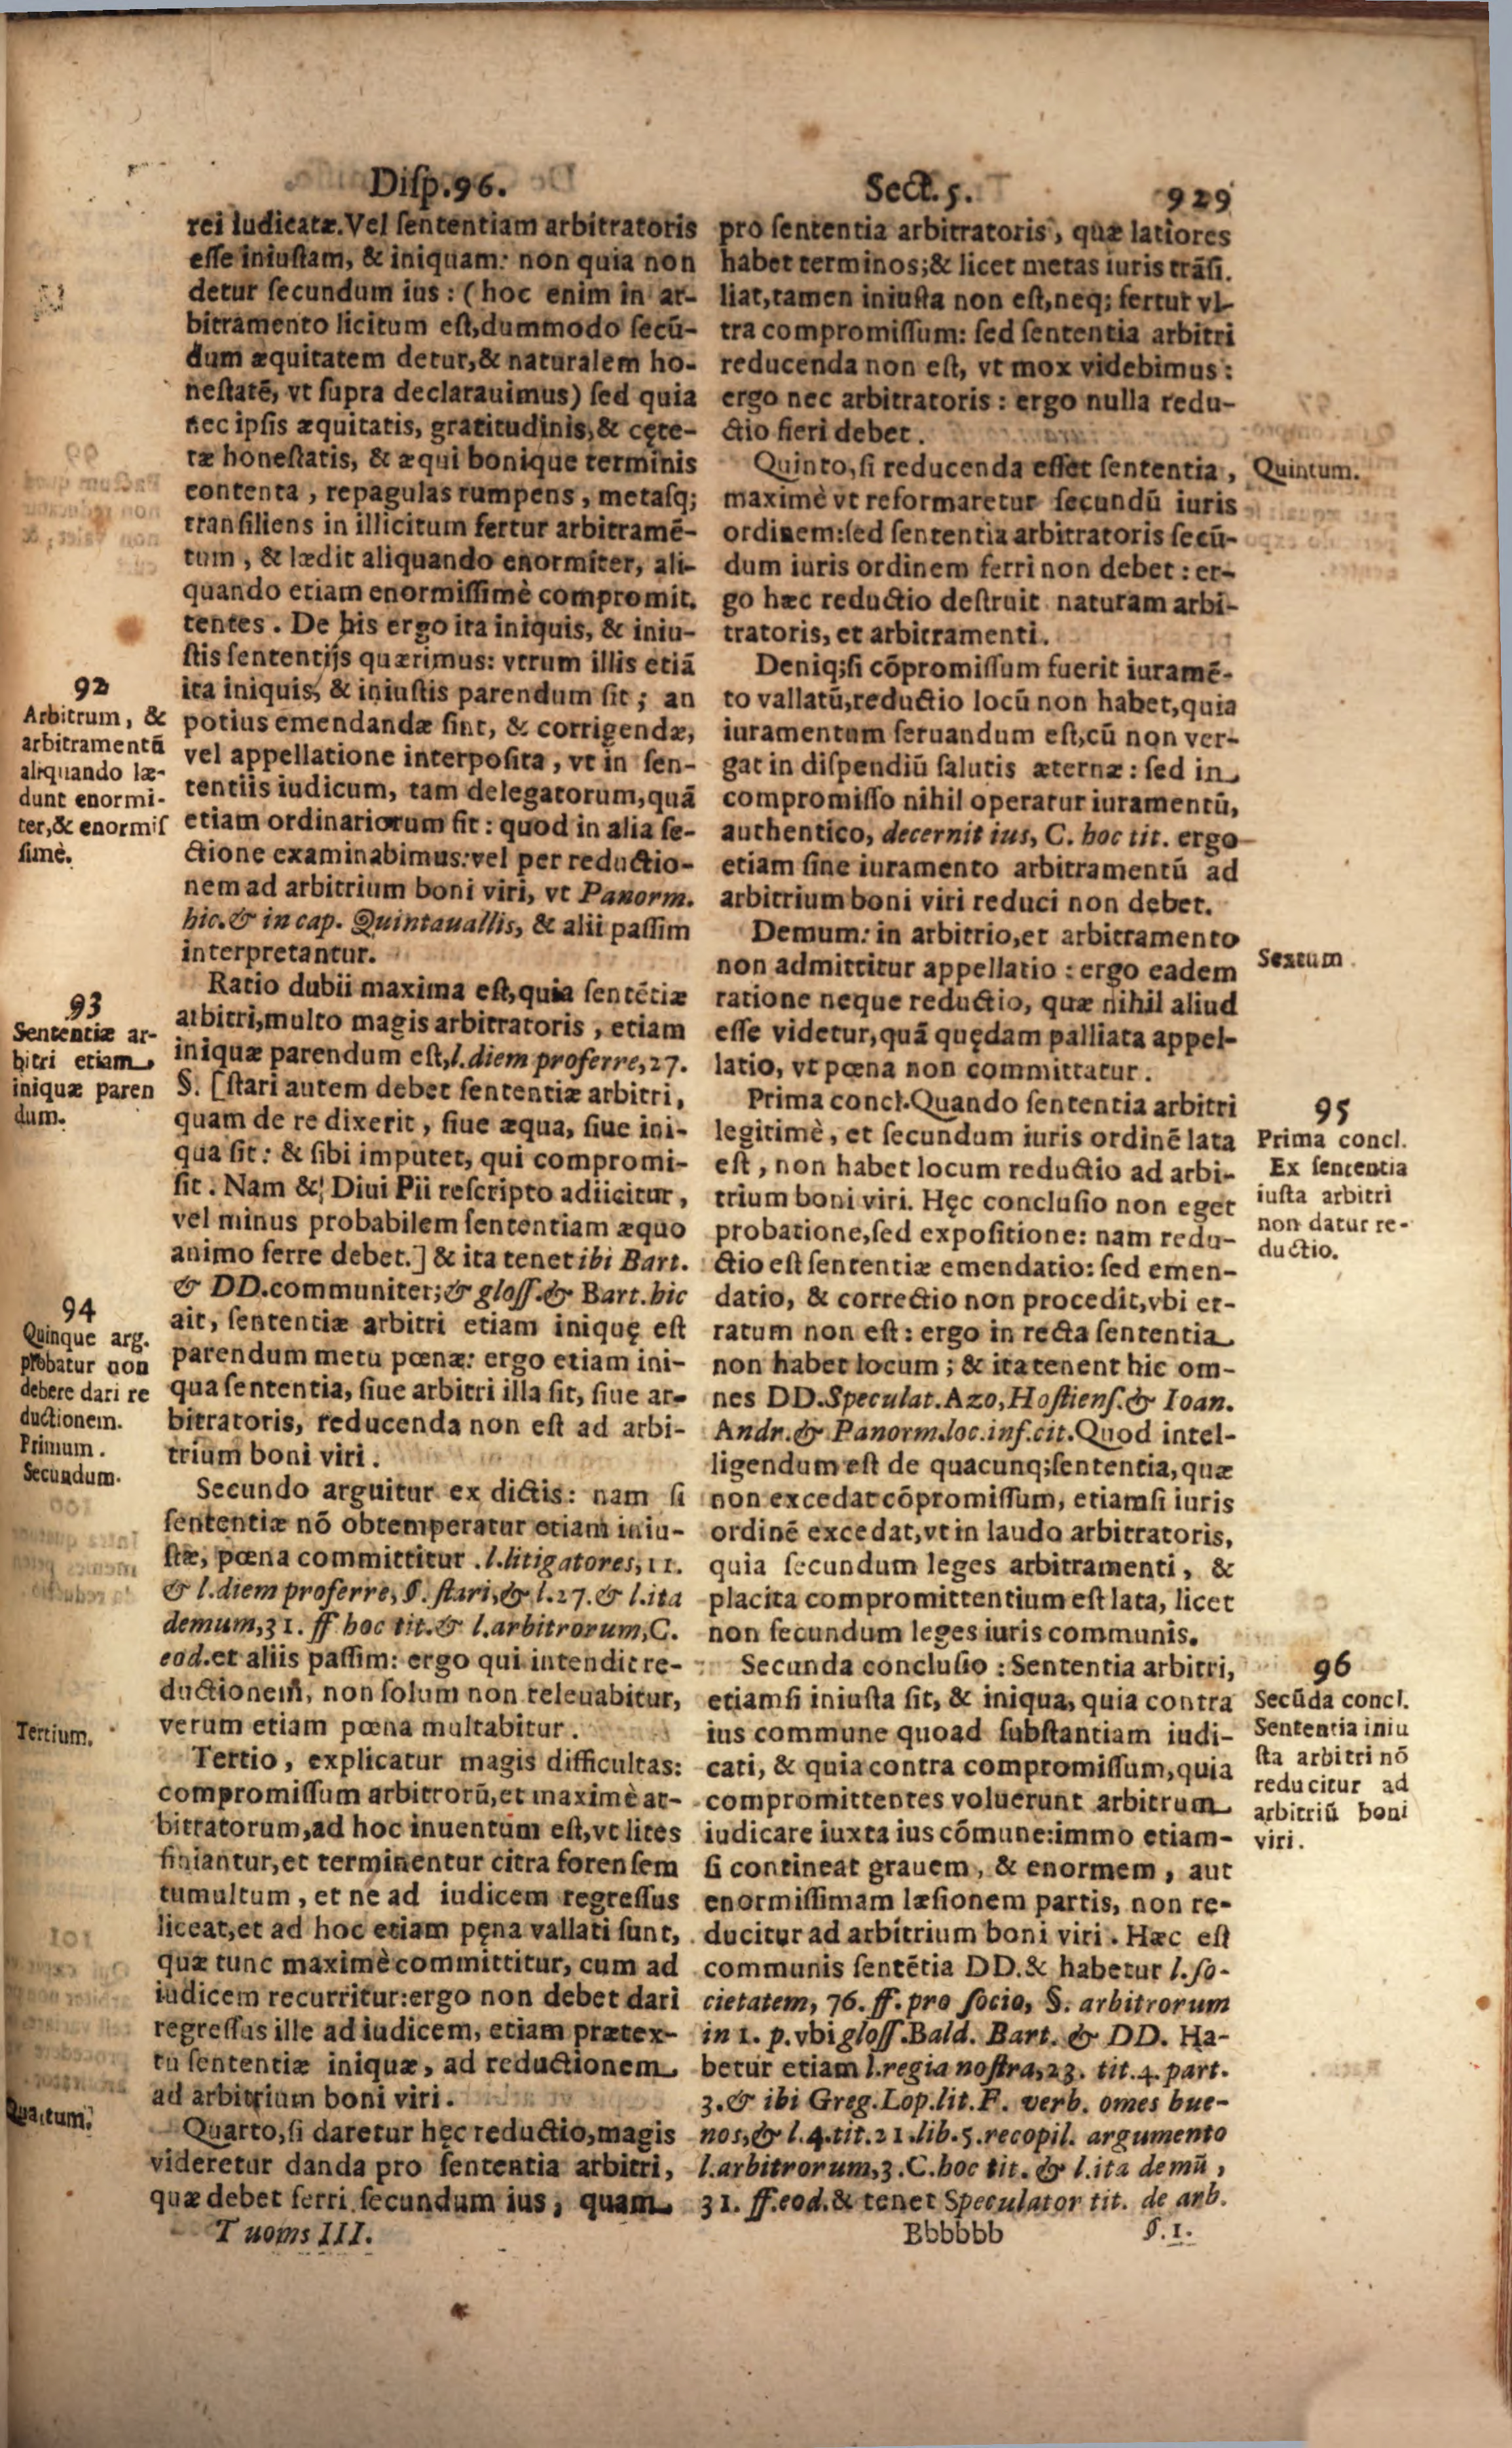 Disp.96.
Sect.5.
929
rei iudicatæ. Vel sententiam arbitratoris
esse iniustam, & iniquam: non quia non
detur secundum ius: (hoc enim in ar-
bitramento licitum est, dummodo secū-
dum æquitatem detur, & naturalem ho-
nestatē, vt supra declarauimus) sed quia
nec ipsis æquitatis, gratitudinis, & cęte-
ræ honestatis, & æqui bonique terminis
contenta, repagulas rumpens, metasq;
transiliens in illicitum fertur arbitramē-
tum, & lædit aliquando enormiter, ali-
quando etiam enormissimè compromit.
tentes. De his ergo ita iniquis, & iniu-
stis sententijs quærimus: vtrum illis etiā
ita iniquis, & iniustis parendum sit; an
potius emendandæ sint, & corrigendæ,
vel appellatione interposita, vt in sen-
tentiis iudicum, tam delegatorum, quā
etiam ordinariorum sit: quod in alia se-
ctione examinabimus: vel per reductio-
nem ad arbitrium boni viri, vt Panorm.
hic. & in cap. Quintauallis, & alii passim
interpretantur.
Ratio dubii maxima est, quia sentētiæ
arbitri, multo magis arbitratoris, etiam
iniquæ parendum est, l. diem proferre, 27.
§. [stari autem debet sententiæ arbitri,
quam de re dixerit, siue æqua, siue ini-
qua sit: & sibi imputet, qui compromi-
sit. Nam & Diui Pii rescripto adiicitur,
vel minus probabilem sententiam æquo
animo ferre debet.] & ita tenet ibi Bart.
& DD. communiter; & gloss. & Bart. hic
ait, sententiæ arbitri etiam iniquę est
parendum metu pœnæ: ergo etiam ini-
qua sententia, siue arbitri illa sit, siue ar-
bitratoris, reducenda non est ad arbi-
trium boni viri.
Secundo arguitur ex dictis: nam si
sententiæ nō obtemperatur etiam iniu-
stæ, pœna committitur. l. litigatores, 11.
& l. diem proferre, §. stari, & l. 27. & l. ita
demum, 31. ff hoc tit. & l. arbitrorum, C.
eod. et aliis passim: ergo qui intendit re-
ductionem, non solum non releuabitur,
verum etiam pœna multabitur.
Tertio, explicatur magis difficultas:
compromissum arbitrorū, et maximè ar-
bitratorum, ad hoc inuentum est, vt lites
finiantur, et terminentur citra forensem
tumultum, et ne ad iudicem regressus
liceat, et ad hoc etiam pęna vallati sunt,
quæ tunc maximè committitur, cum ad
iudicem recurritur: ergo non debet dari
regressus ille ad iudicem, etiam prætex-
tu sententiæ iniquæ, ad reductionem
ad arbitrium boni viri.
Quarto, si daretur hęc reductio, magis
videretur danda pro sententia arbitri,
quæ debet ferri secundum ius, quam
Tuoms III.
92
Arbitrum, &
arbitramentū
aliquando læ-
dunt enormi-
ter, & enormis
simè.
93
Sententiæ ar-
bitri etiam
iniquæ paren
dum.
94
Quinque arg.
probatur non
debere dari re
ductionem.
Primum.
Secundum.
Tertium.
Quartum.
pro sententia arbitratoris, quæ latiores
habet terminos; & licet metas iuris trāsi.
liat, tamen iniusta non est, neq; fertur vl-
tra compromissum: sed sententia arbitri
reducenda non est, vt mox videbimus:
ergo nec arbitratoris: ergo nulla redu-
ctio fieri debet.
Quinto, si reducenda esset sententia,
maximè vt reformaretur secundū iuris
ordinem: sed sententia arbitratoris secū-
dum iuris ordinem ferri non debet: er-
go hæc reductio destruit naturam arbi-
tratoris, et arbitramenti.
Deniq; si cōpromissum fuerit iuramē-
to vallatū, reductio locū non habet, quia
iuramentum seruandum est, cū non ver-
gat in dispendiū salutis æternæ: sed in
compromisso nihil operatur iuramentū,
authentico, decernit ius, C. hoc tit. ergo
etiam sine iuramento arbitramentū ad
arbitrium boni viri reduci non debet.
Demum: in arbitrio, et arbitramento
non admittitur appellatio: ergo eadem
ratione neque reductio, quæ nihil aliud
esse videtur, quā quędam palliata appel-
latio, vt pœna non committatur.
Prima concl. Quando sententia arbitri
legitimè, et secundum iuris ordinē lata
est, non habet locum reductio ad arbi-
trium boni viri. Hęc conclusio non eget
probatione, sed expositione: nam redu-
ctio est sententiæ emendatio: sed emen-
datio, & correctio non procedit, vbi er-
ratum non est: ergo in recta sententia
non habet locum; & ita tenent hic om-
nes DD. Speculat. Azo, Hostiens. & Ioan.
Andr. & Panorm. loc. inf. cit. Quod intel-
ligendum est de quacunq; sententia, quæ
non excedat cōpromissum, etiamsi iuris
ordinē excedat, vt in laudo arbitratoris,
quia secundum leges arbitramenti, &
placita compromittentium est lata, licet
non secundum leges iuris communis.
Secunda conclusio: Sententia arbitri,
etiamsi iniusta sit, & iniqua, quia contra
ius commune quoad substantiam iudi-
cati, & quia contra compromissum, quia
compromittentes voluerunt arbitrum
iudicare iuxta ius cōmune: immo etiam-
si contineat grauem, & enormem, aut
enormissimam læsionem partis, non re-
ducitur ad arbitrium boni viri. Hæc est
communis sentētia DD. & habetur l. so-
cietatem, 76. ff. pro socio, §. arbitrorum
in 1. p. vbi gloss. Bald. Bart. & DD. Ha-
betur etiam l. regia nostra, 23. tit. 4. part.
3. & ibi Greg. Lop. lit. F. verb. omes bue-
nos, & l. 4. tit. 21. lib. 5. recopil. argumento
l. arbitrorum, 3. C. hoc tit. & l. ita demū,
31. ff. eod. & tenet Speculator tit. de arb.
Bbbbbb
§. 1.
Quintum.
Sextum.
95
Prima concl.
Ex sententia
iusta arbitri
non datur re-
ductio.
96
Secūda concl.
Sententia iniu
sta arbitri nō
reducitur ad
arbitriū boni
viri.